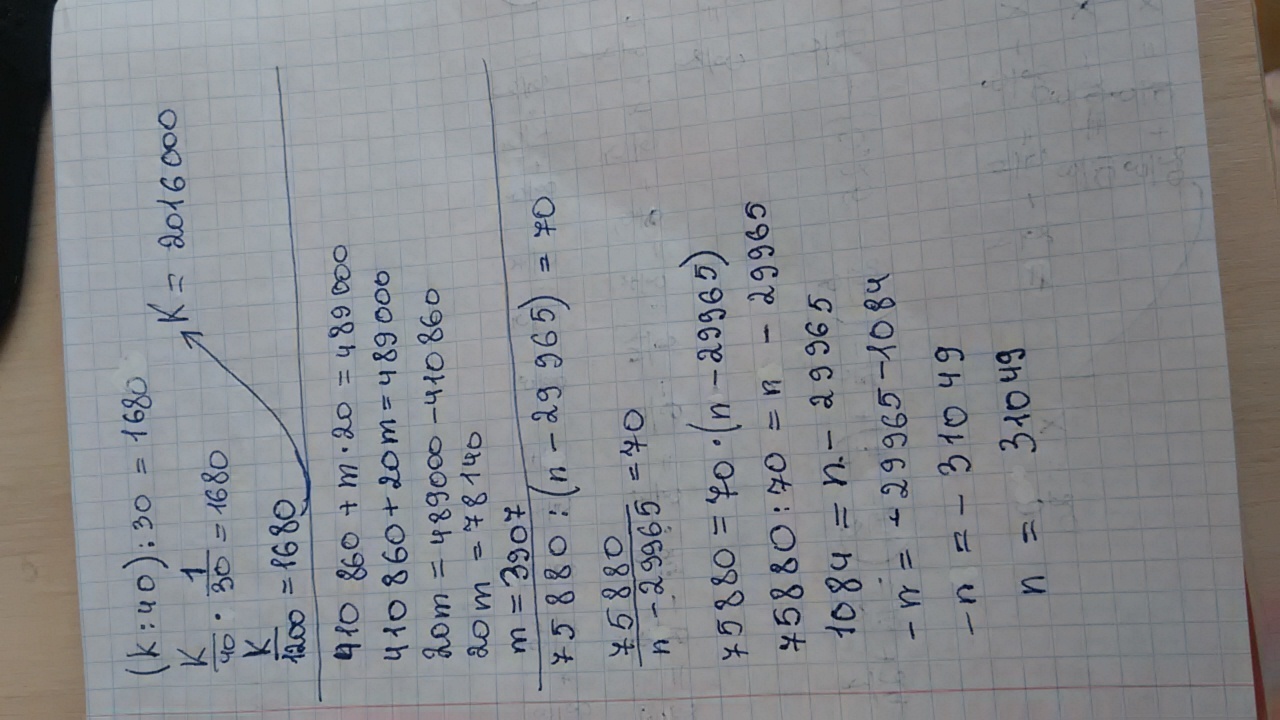 (k:40):30=1680
K/40 · 1/30 = 1680
K/1200 = 1680
K = 2016000
410 860 + m·20 = 489000
410860+20m=489000
20m = 489000 - 410860
20m = 78140
m = 3907
75880:(n-29 965) = 70
75880/n-29965 = 70
75880=70·(n-29965)
75880:70 = n - 29965
1084 = n - 29965
-n = -29965-1084
-n = - 31049
n = 31049